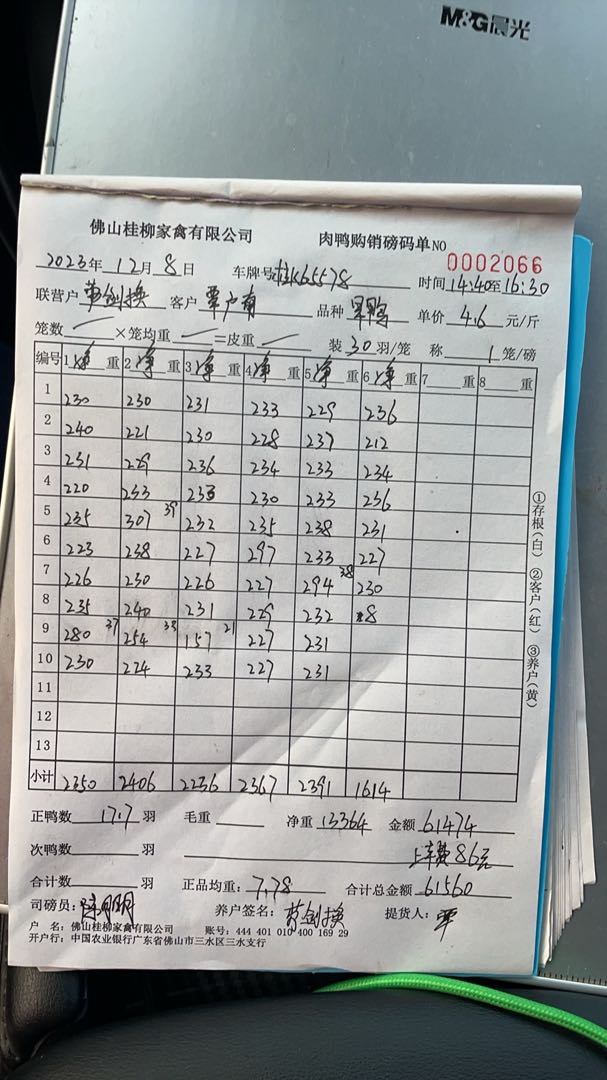 M&G晨光
佛山桂柳家禽有限公司 肉鸭购销磅码单NO 0002066
2023年 12月 8日 车牌号桂K65578 时间14:40至16:30
联营户 客户 覃户南 品种 单价 4.6 元/斤
笼数 ×笼均重 =皮重 装 30 羽/笼 称 1 笼/磅
编号 1净重 2净重 3净重 4净重 5净重 6净重 7 重 8 重
1 230 230 231 233 229 236
2 240 221 230 228 237 212
3 231 229 236 234 233 234
4 220 233 233 230 233 236
5 235 307 39 232 235 238 231
6 223 238 227 297 233 227
7 226 230 226 227 294 38 230
8 235 240 231 229 232 8
9 280 37 254 33 157 21 227 231
10 230 224 233 227 231
11
12
13
小计 2350 2406 2236 2367 2391 1614
①存根(白) ②客户(红) ③养户(黄)
正鸭数 1717 羽 毛重 净重 13364 金额 61474
次鸭数 羽 上车费86元
合计数 羽 正品均重: 7.78 合计总金额 61560
司磅员: 养户签名: 提货人: 覃
户 名: 佛山桂柳家禽有限公司 账号: 444 401 010 400 169 29
开户行: 中国农业银行广东省佛山市三水区三水支行